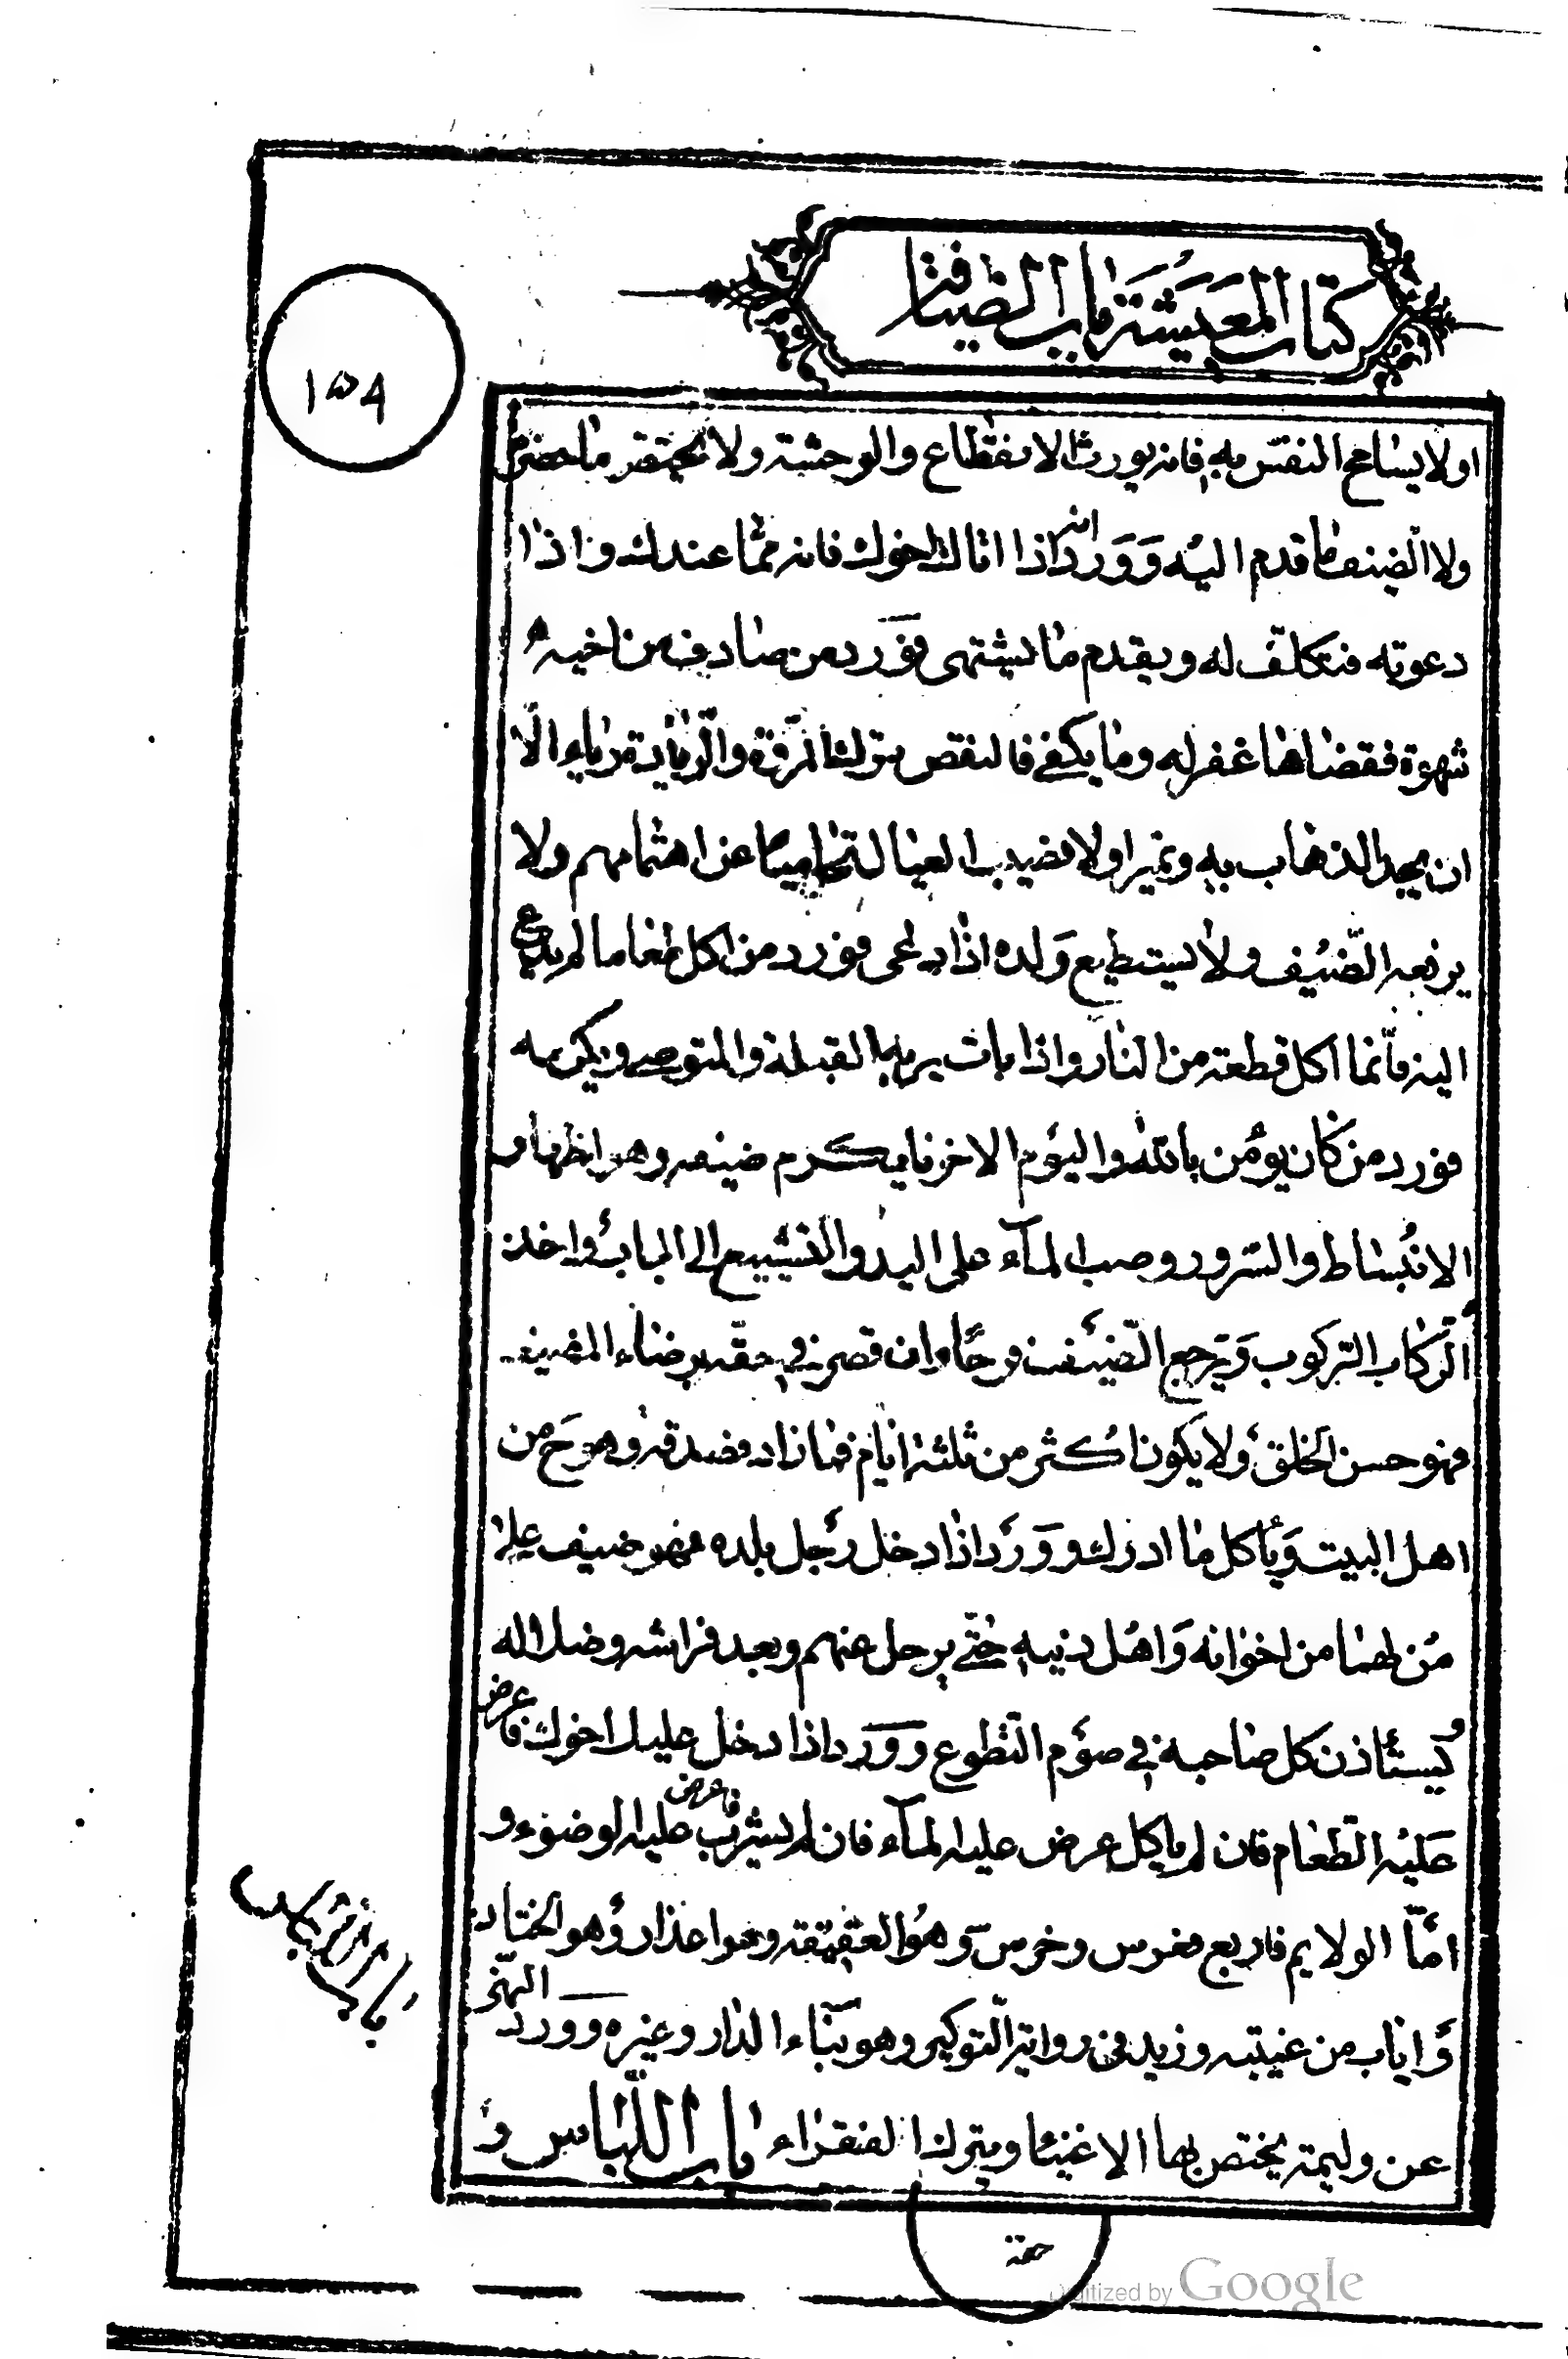 كتاب المعيشة باب الضيافة
١٥٨
او لا يسامح النفس به فانه يورث الانقطاع والوحشة ولا يحتقر ما حضر
ولا الضيف ما قدم اليه وَوَرد انه اذا اتاك اخوك فاته ممّا عندك واذا
دعوته فتكلّف له ويقدم ما يشتهى فوَرد من صادف من اخيه
شهوة فقضاها غفر له وما يكفى فالنقص بترك المرقة والزيادة رياء الّا
ان يجد الذهاب به وتميز اولا نصيب العيال عن اهتمامهم ولا
يرفعه الضّيف ولا يستطيع وَلده اذا دعى فورد من اكل طعاما لم يدع
اليه فانّما اكل قطعة من النار واذا بات يريه القبلة والمتوضى ويكرمه
فورد من كان يؤمن بالله واليوم الاخر فليكرم ضيفه وهو اظهار
الانبساط والسّرور وصب المآء على اليد والتشييع الى الباب واخذ
الرّكاب للركوب وَيرجع الضّيف فرحا وان قصر فى حقّه برضاء المضيف
فهو حسن الخلق ولا يكون اكثر من ثلثة ايّام فما زاد فصدقة وهو ح من
اهل البيت وَيأكل ما ادرك وَوَرد اذا دخل رَجل بلده فهو ضيف على
مَن بها من اخوانه وَاهل دينه حتّى يرحل عنهم ويعد فراشه وضلاله
يستأذن كل صاحبه فى صوم التّطوع وَوَرد اذا دخل عليك اخوك فاعرض
عليه الطّعام فان لم ياكل عرض عليه المآء فان لم يشرب فاعرض عليه الوضوء و
امّا الولايم فاربع عرس وخرس وَهو العقيقة وعذار وَهو الختان
وَاياب من غيبته وزيد فى رواية التّوكير وهو بنآء الدار وغيره وَورد النّهى
عن وليمة يختص بها الاغنيا ويترك الفقراء باب اللّباس وَ